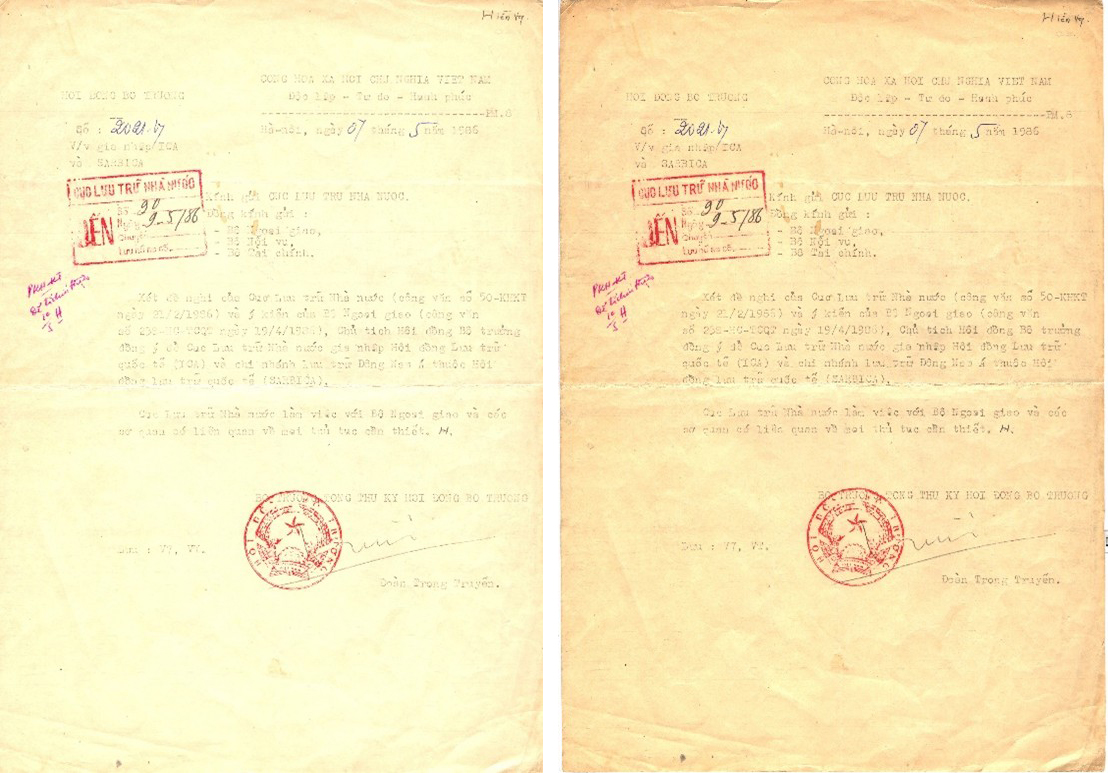 Hiển Vy
CONG HOA XA HOI CHU NGHIA VIET NAM
HOI DONG BO TRUONG
Độc lập - Tư do - Hạnh phúc
PM.8
Số : 2021.V7
Hà-nội, ngày 07 tháng 5 năm 1986
V/v gia nhập/ICA
và SARBICA
CỤC LƯU TRỮ NHÀ NƯỚC
ĐẾN
Số 90
Ngày 9-5/86
Kính gửi CUC LUU TRU NHA NUOC.
Đồng kính gửi :
- Bộ Ngoại giao,
- Bộ Nội vụ,
- Bộ Tài chính.
Xét đề nghị của Cục Lưu trữ Nhà nước (công văn số 50-KHKT
ngày 21/2/1986) và ý kiến của Bộ Ngoại giao (công văn
số 252-HC-TCQT ngày 19/4/1986), Chủ tịch Hội đồng Bộ trưởng
đồng ý để Cục Lưu trữ Nhà nước gia nhập Hội đồng Lưu trữ
quốc tế (ICA) và chi nhánh Lưu trữ Đông Nam Á thuộc Hội
đồng Lưu trữ quốc tế (SARBICA).
Cục Lưu trữ Nhà nước làm việc với Bộ Ngoại giao và các
cơ quan có liên quan về mọi thủ tục cần thiết. H.
BO TRUONG TONG THU KY HOI DONG BO TRUONG
HỘI ĐỒNG BỘ TRƯỞNG
Lưu : V7, VT.
Đoàn Trọng Truyến.
CONG HOA XA HOI CHU NGHIA VIET NAM
HOI DONG BO TRUONG
Độc lập - Tư do - Hạnh phúc
PM.8
Số : 2021.V7
Hà-nội, ngày 07 tháng 5 năm 1986
V/v gia nhập/ICA
và SARBICA
CỤC LƯU TRỮ NHÀ NƯỚC
ĐẾN
Số 90
Ngày 9-5/86
Kính gửi CUC LUU TRU NHA NUOC.
Đồng kính gửi :
- Bộ Ngoại giao,
- Bộ Nội vụ,
- Bộ Tài chính.
Xét đề nghị của Cục Lưu trữ Nhà nước (công văn số 50-KHKT
ngày 21/2/1986) và ý kiến của Bộ Ngoại giao (công văn
số 252-HC-TCQT ngày 19/4/1986), Chủ tịch Hội đồng Bộ trưởng
đồng ý để Cục Lưu trữ Nhà nước gia nhập Hội đồng Lưu trữ
quốc tế (ICA) và chi nhánh Lưu trữ Đông Nam Á thuộc Hội
đồng Lưu trữ quốc tế (SARBICA).
Cục Lưu trữ Nhà nước làm việc với Bộ Ngoại giao và các
cơ quan có liên quan về mọi thủ tục cần thiết. H.
BO TRUONG TONG THU KY HOI DONG BO TRUONG
HỘI ĐỒNG BỘ TRƯỞNG
Lưu : V7, VT.
Đoàn Trọng Truyến.